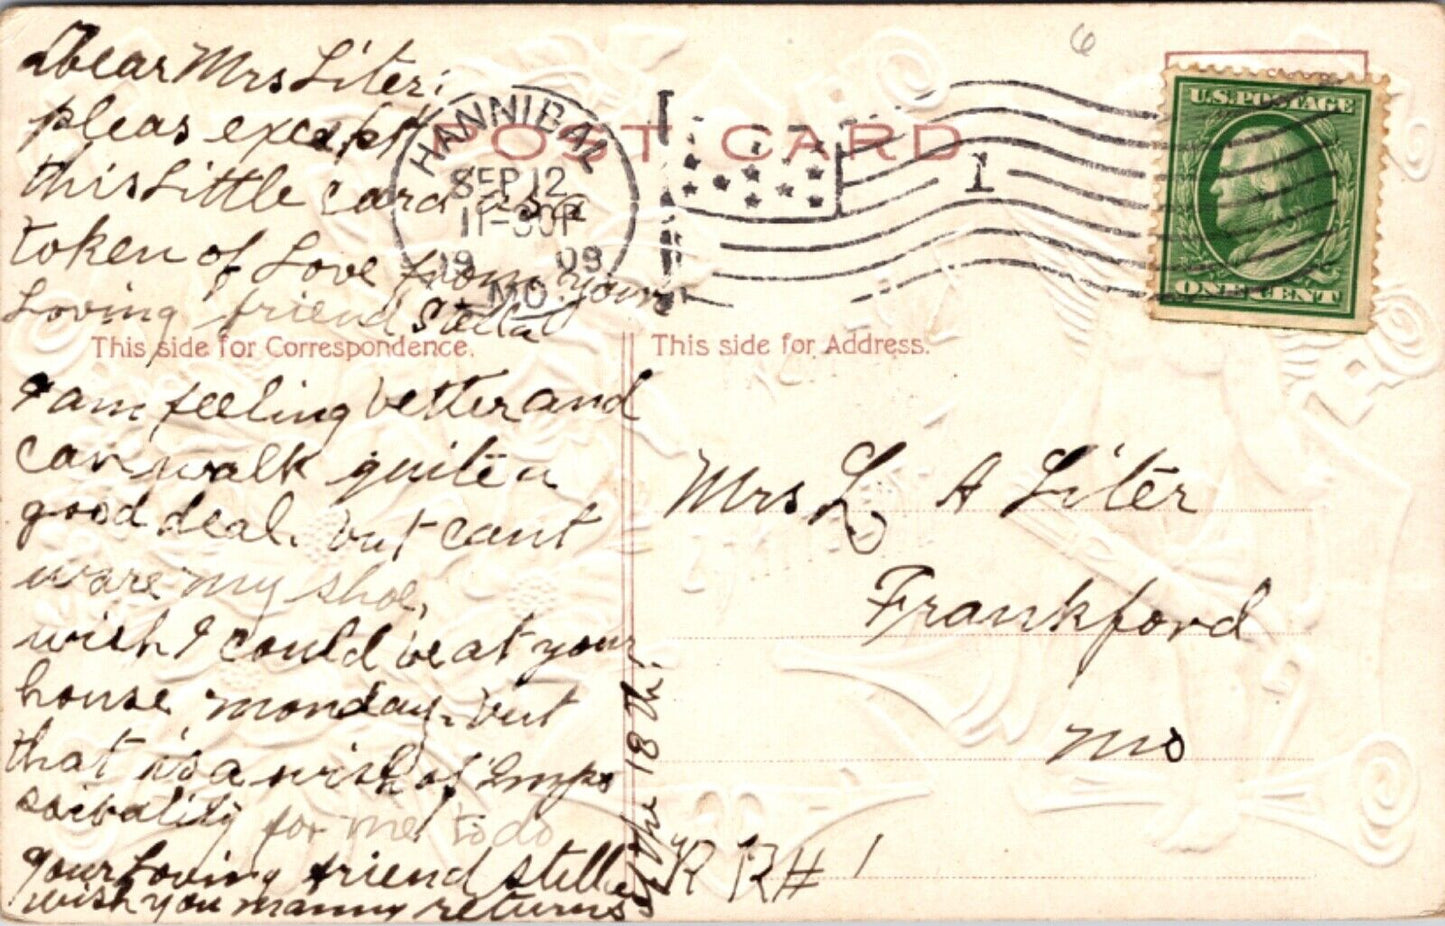 Dear Mrs Liter:
pleas except
this Little card as a
token of Love from your
Loving friend Stella
I am feeling better and
can walk quite a
good deal. but cant
ware my shoe,
wish I could be at your
house monday. but
that is a wish of Impo
scibality for me to do
your Loving friend Stella
wish you manny returns
of the 18th.
POST CARD
HANNIBAL
SEP 12
11-30P
1909
MO.
1
6
U.S. POSTAGE
ONE CENT
This side for Correspondence.
This side for Address.
Mrs L A Liter
Frankford
Mo
R R # 1